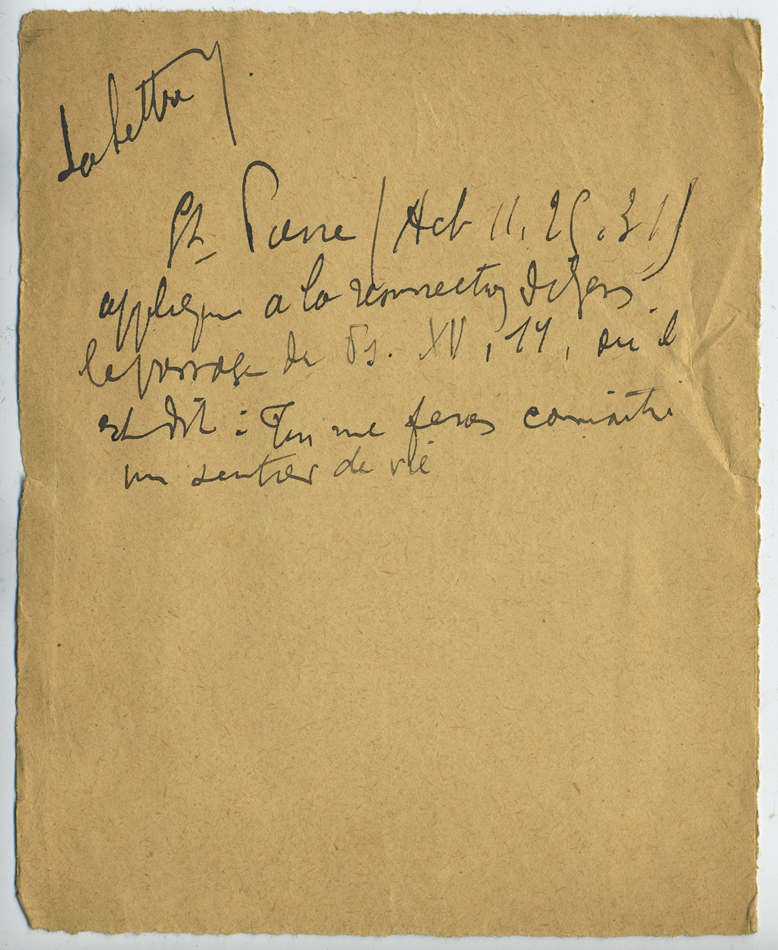 La lettre y.
St Pierre (Act 11, 25.31)
applique a la resurrection de Jesus
le passage du Ps. XV, 11, où il
est dit : Tu me feras connaitre
un sentier de vie